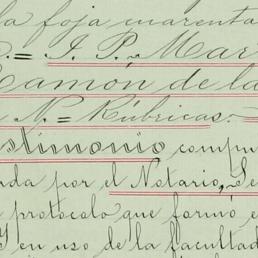 la foja cuarenta
P. = J. P. Mar
Ramón de la
N. = Rúbricas. =
stimonio compu
da por el Notario, Se
protocolo que formó e
Y en uso de la facultad